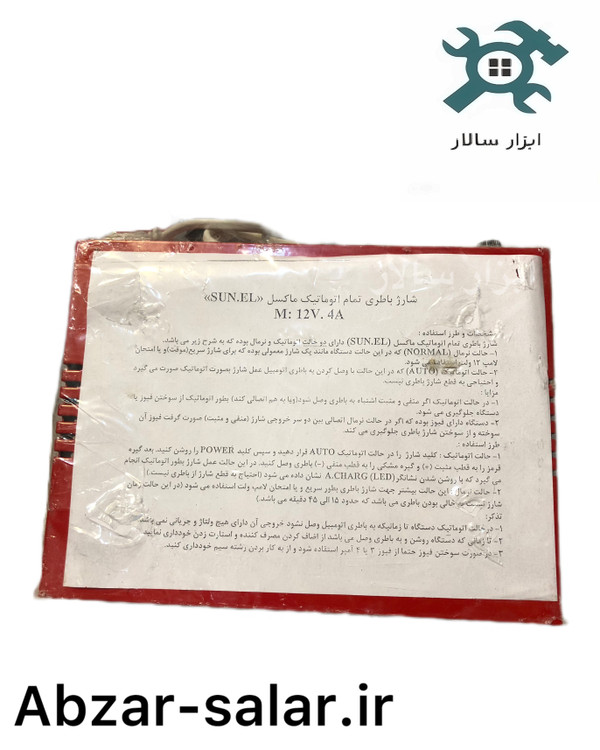 ابزار سالار
شارژ باطری تمام اتوماتیک ماکسل «SUN.EL»
M: 12V. 4A
مشخصات و طرز استفاده :
شارژ باطری تمام اتوماتیک ماکسل (SUN.EL) دارای دو حالت اتوماتیک و نرمال بوده که به شرح زیر می باشد.
۱- حالت نرمال (NORMAL) که در این حالت دستگاه مانند یک شارژ معمولی بوده که برای شارژ سریع(موقت)و یا امتحان
لامپ ۱۲ ولت استفاده می شود.
۲- حالت اتوماتیک (AUTO) که در این حالت با وصل کردن به باطری اتومبیل عمل شارژ بصورت اتوماتیک صورت می گیرد
و احتیاجی به قطع شارژ باطری نیست.
مزایا :
۱- در حالت اتوماتیک اگر منفی و مثبت اشتباه به باطری وصل شود(ویا به هم اتصالی کند) بطور اتوماتیک از سوختن فیوز یا
دستگاه جلوگیری می شود.
۲- دستگاه دارای فیوز بوده که اگر در حالت نرمال اتصالی بین دو سر خروجی شارژ (منفی و مثبت) صورت گرفت فیوز آن
سوخته و از سوختن شارژ باطری جلوگیری می کند.
طرز استفاده :
۱- حالت اتوماتیک : کلید شارژ را در حالت اتوماتیک AUTO قرار دهید و سپس کلید POWER را روشن کنید. بعد گیره
قرمز را به قطب مثبت (+) و گیره مشکی را به قطب منفی (-) باطری وصل کنید. در این حالت عمل شارژ بطور اتوماتیک انجام
می گیرد که با روشن شدن نشانگر A.CHARG (LED) نشان داده می شود (احتیاج به قطع شارژ از باطری نیست.)
۲- حالت نرمال : این حالت بیشتر جهت شارژ باطری بطور سریع و یا امتحان لامپ ولت استفاده می شود (در این حالت زمان
شارژ بسته به خالی بودن باطری می باشد که حدود ۱۵ الی ۴۵ دقیقه می باشد.)
تذکر:
۱- در حالت اتوماتیک دستگاه تا زمانیکه به باطری اتومبیل وصل نشود خروجی آن دارای هیچ ولتاژ و جریانی نمی باشد.
۲- تا زمانی که دستگاه روشن و به باطری وصل می باشد از اضاف کردن مصرف کننده و استارت زدن خودداری نمایید.
۳- در صورت سوختن فیوز حتما از فیوز ۳ یا ۴ آمپر استفاده شود و از به کار بردن رشته سیم خودداری کنید.
Abzar-salar.ir